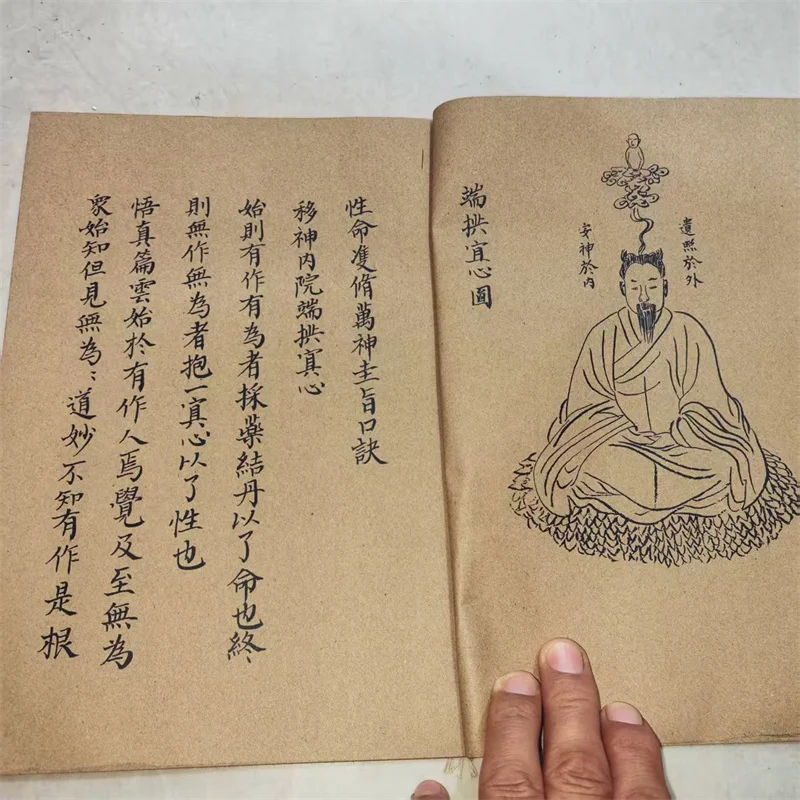 遺照於外
安神於內
端拱宜心圖
性命雙脩萬神圭旨口訣
移神內院端拱寘心
始則有作有為者採藥結丹以了命也終
則無作無為者抱一寘心以了性也
悟真篇雲始於有作人焉覺及至無為
衆始知但見無為:道妙不知有作是根